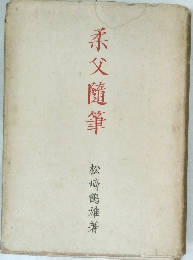 柔父随筆
松崎鶴雄著